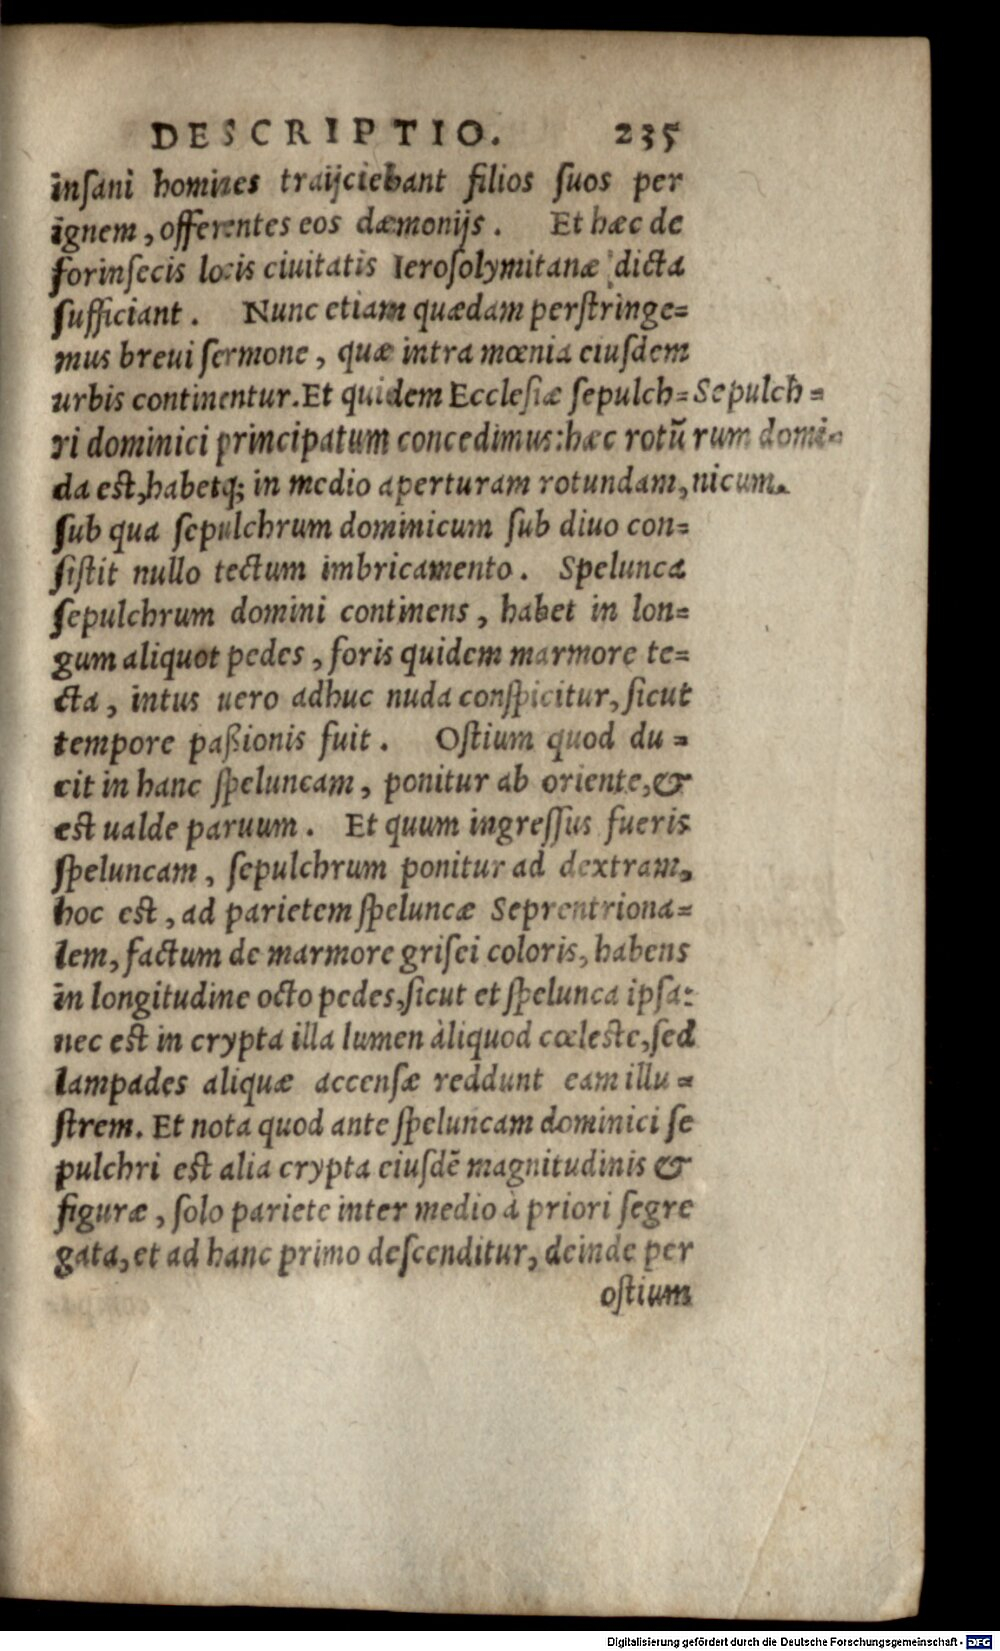 DESCRIPTIO. 235
inſani homines traijciebant filios ſuos per
ignem, offerentes eos dæmonijs. Et hæc de
forinſecis locis ciuitatis Ieroſolymitanæ dicta
ſufficiant. Nunc etiam quædam perſtringe=
mus breui ſermone, quæ intra mœnia eiuſdem
urbis continentur. Et quidem Eccleſiæ ſepulch=
ri dominici principatum concedimus: hæc rotū
da est, habetq; in medio aperturam rotundam,
ſub qua ſepulchrum dominicum ſub diuo con=
ſiſtit nullo tectum imbricamento. Spelunca
ſepulchrum domini continens, habet in lon=
gum aliquot pedes, foris quidem marmore te=
cta, intus uero adhuc nuda conſpicitur, ſicut
tempore paßionis fuit. Oſtium quod du=
cit in hanc ſpeluncam, ponitur ab oriente, &
est ualde paruum. Et quum ingreſſus fueris
ſpeluncam, ſepulchrum ponitur ad dextram,
hoc est, ad parietem ſpeluncæ Seprentriona=
lem, factum de marmore griſei coloris, habens
in longitudine octo pedes, ſicut et ſpelunca ipſa:
nec est in crypta illa lumen àliquod cœleste, ſed
lampades aliquæ accenſæ reddunt eam illu=
ſtrem. Et nota quod ante ſpeluncam dominici ſe
pulchri est alia crypta eiuſdē magnitudinis &
figuræ, ſolo pariete inter medio à priori ſegre
gata, et ad hanc primo deſcenditur, deinde per
oſtium
Sepulch=
rum domi=
nicum.
Digitalisierung gefördert durch die Deutsche Forschungsgemeinschaft - DFG